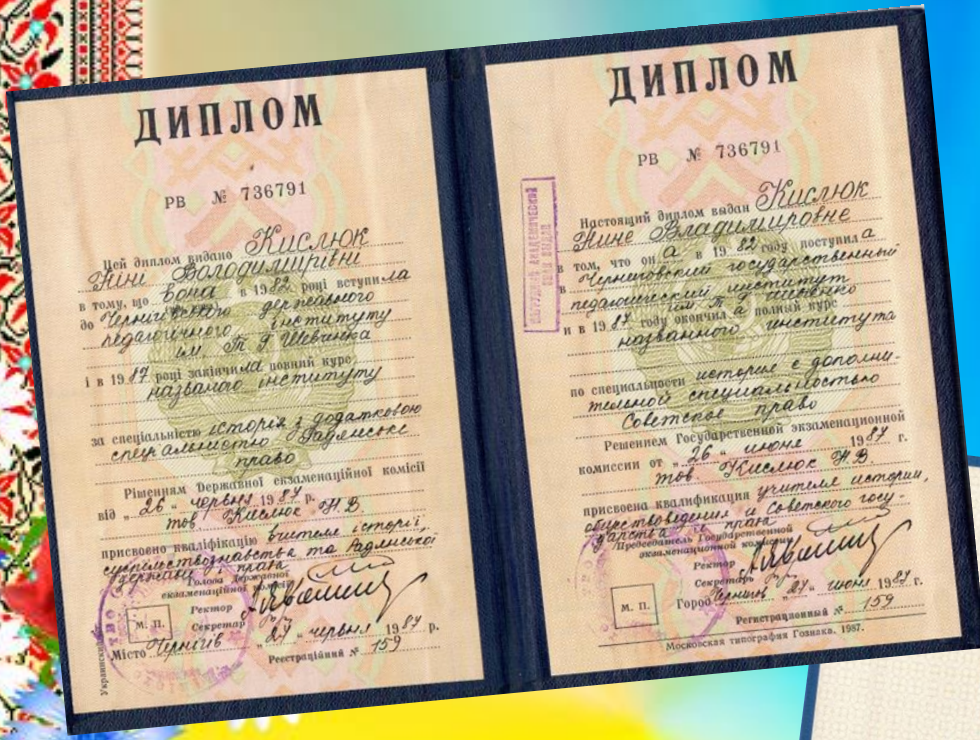 ДИПЛОМ
РВ № 736791
Цей диплом видано Кислюк
Ніні Володимирівні
в тому, що вона в 1982 році вступила
до Чернігівського державного
педагогічного інституту
ім. Т Г Шевченка
і в 1987 році закінчила повний курс
названого інституту
за спеціальністю історія з додатковою
спеціальністю Радянське
право
Рішенням Державної екзаменаційної комісії
від „26“ червня 1987 р.
тов. Кислюк Н.В.
присвоєно кваліфікацію вчителя історії,
суспільствознавства та Радянської
держави і права
Голова Державної
екзаменаційної комісії
Ректор
М. П. Секретар
Місто Чернігів „27“ червня 1987 р.
Реєстраційний № 159
ДИПЛОМ
РВ № 736791
Настоящий диплом выдан Кислюк
Нине Владимировне
в том, что она в 1982 году поступила
в Черниговский государственный
педагогический институт
им. Т Г Шевченко
и в 1987 году окончила полный курс
названного института
по специальности история с дополни-
тельной специальностью
Советское право
Решением Государственной экзаменационной
комиссии от „26“ июня 1987 г.
тов. Кислюк Н.В.
присвоена квалификация учителя истории,
обществоведения и Советского госу-
дарства и права
Председатель Государственной
экзаменационной комиссии
Ректор
Секретарь
М. П. Город Чернигов „27“ июня 1987 г.
Регистрационный № 159
Московская типография Гознака. 1987.